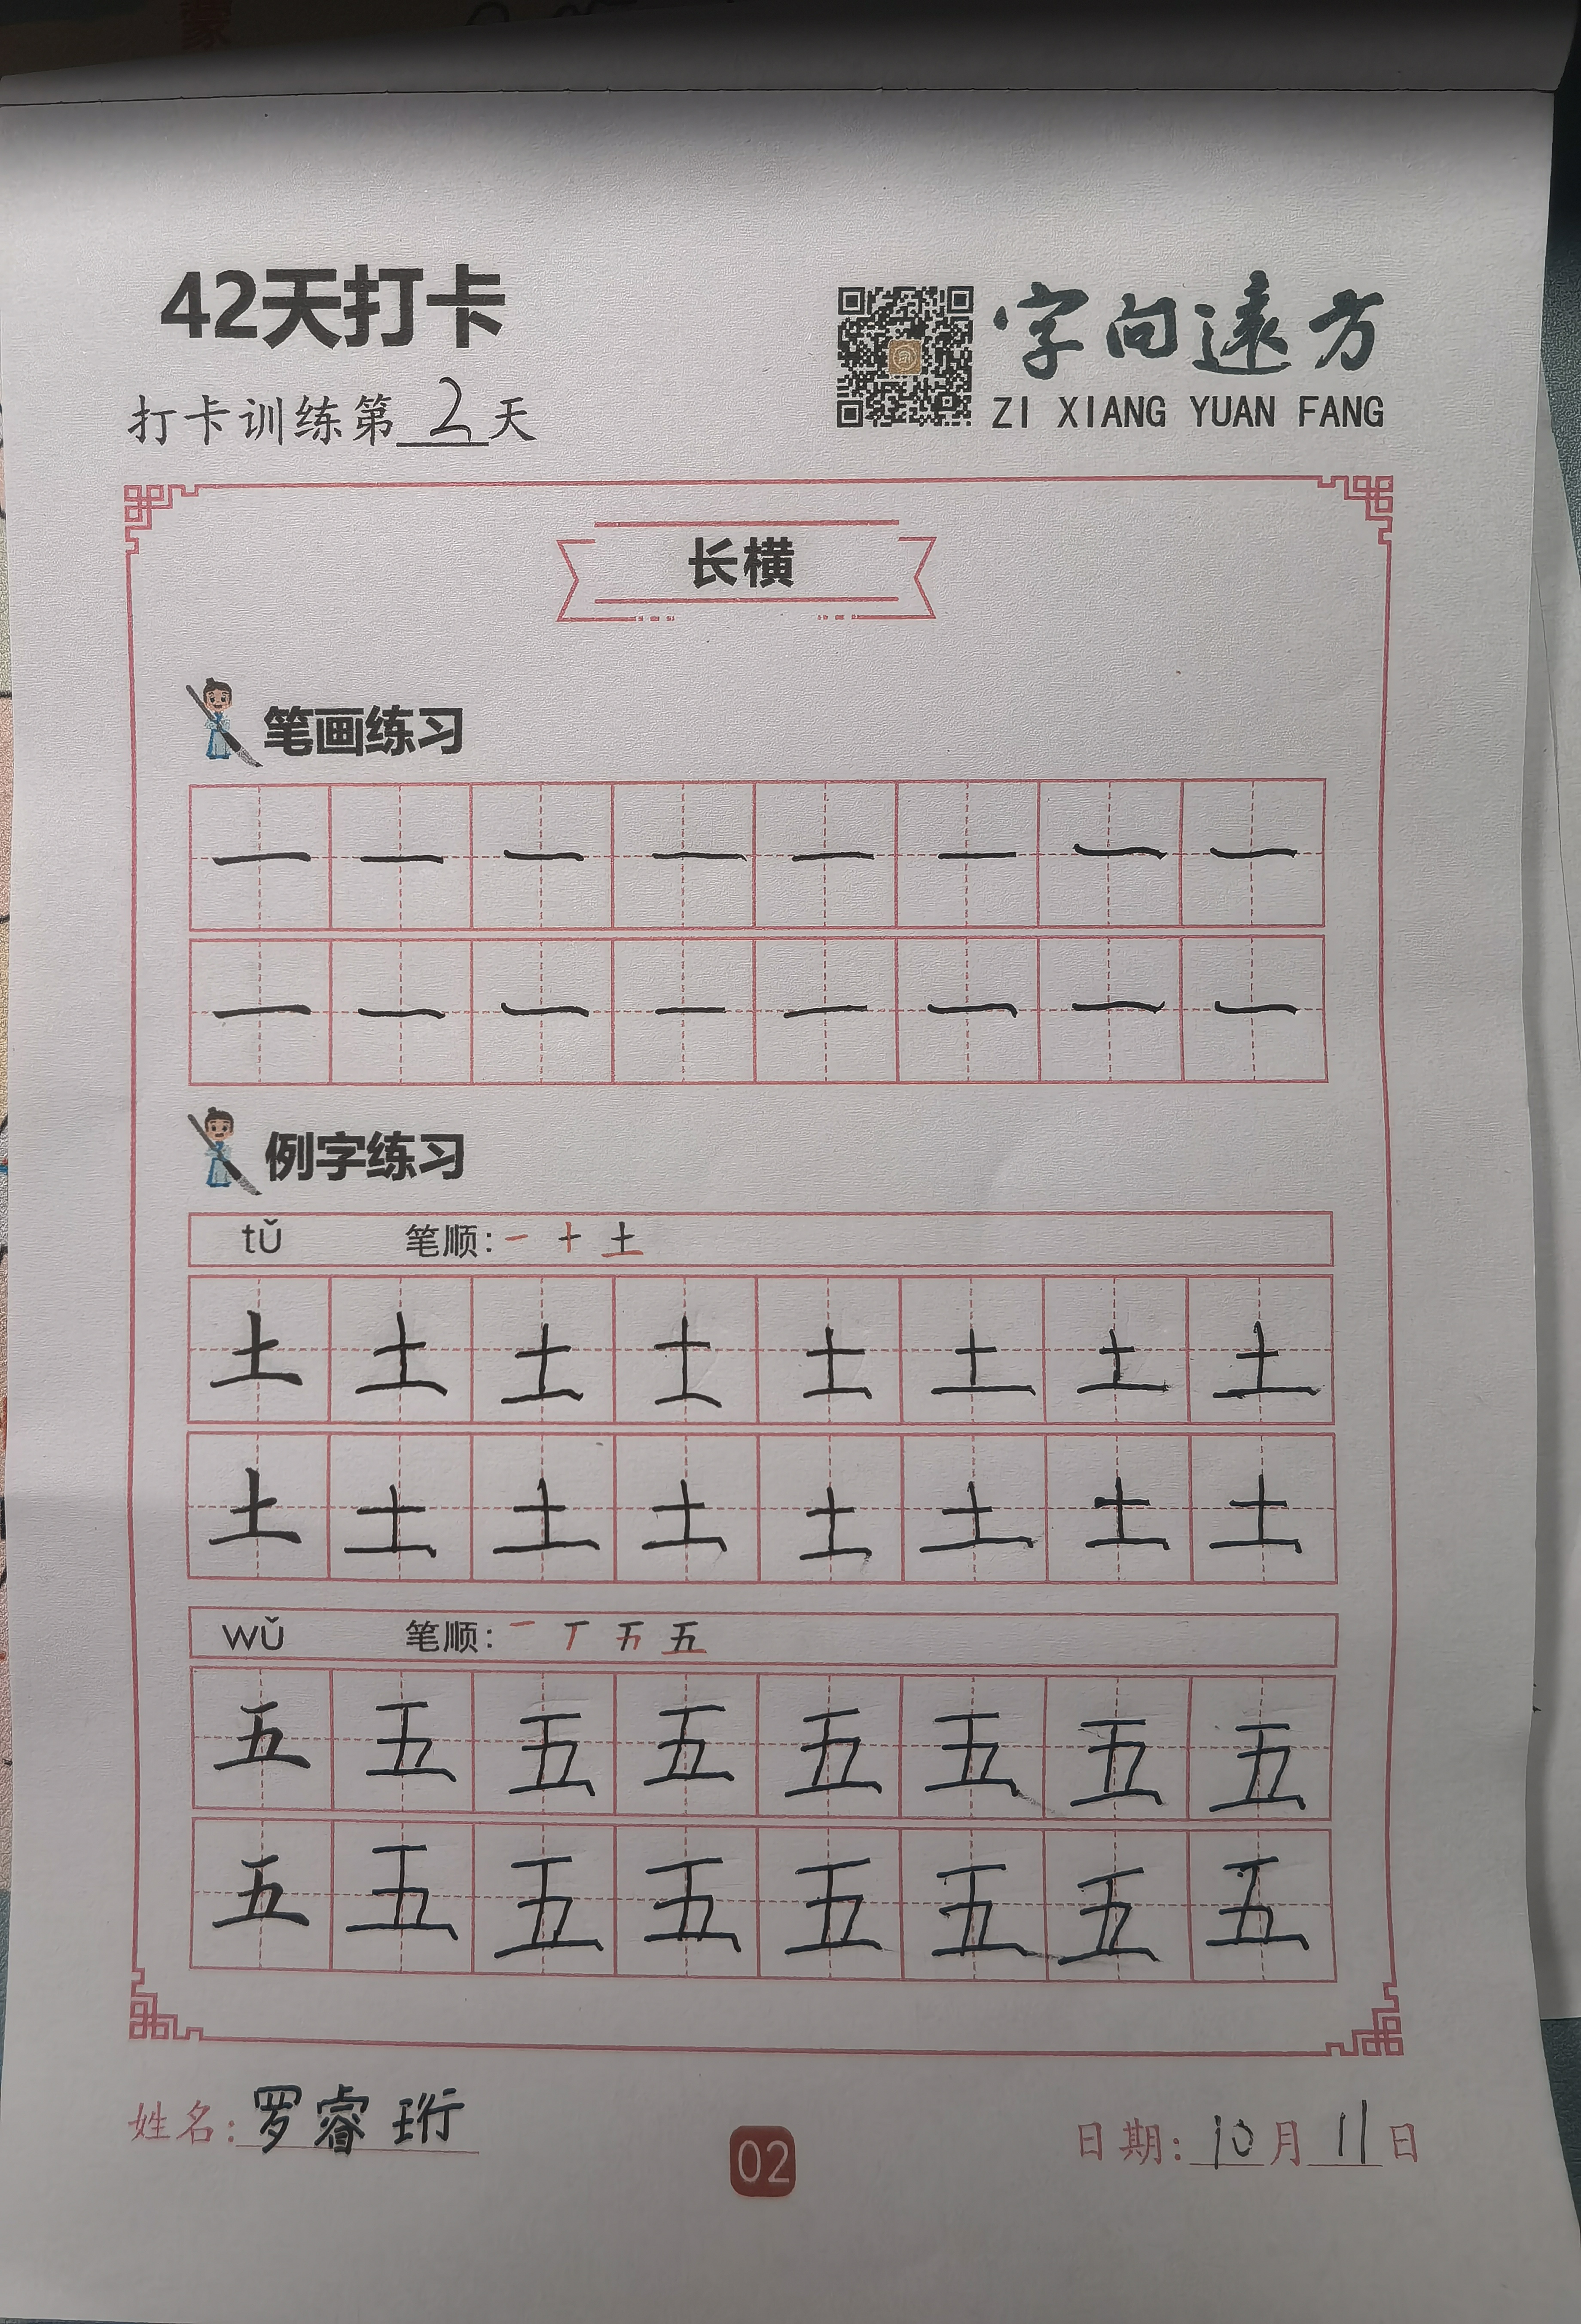 蒙
42天打卡
字向遠方
ZI XIANG YUAN FANG
打卡训练第2天
长横
笔画练习
一 一 一 一 一 一 一 一
一 一 一 一 一 一 一 一
例字练习
tǔ 笔顺: 一 十 土
土 土 土 土 土 土 土 土
土 土 土 土 土 土 土 土
wǔ 笔顺: 一 丆 五
五 五 五 五 五 五 五 五
五 五 五 五 五 五 五 五
姓名: 罗睿珩
02
日期: 10月11日